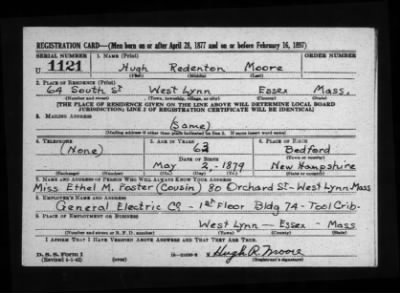 REGISTRATION CARD—(Men born on or after April 28, 1877 and on or before February 16, 1897)
SERIAL NUMBER 1. NAME (Print) ORDER NUMBER
U 1121 Hugh Redenton Moore
(First) (Middle) (Last)
2. PLACE OF RESIDENCE (Print)
64 South St West Lynn Essex Mass.
(Number and street) (Town, township, village, or city) (County) (State)
[THE PLACE OF RESIDENCE GIVEN ON THE LINE ABOVE WILL DETERMINE LOCAL BOARD
JURISDICTION; LINE 2 OF REGISTRATION CERTIFICATE WILL BE IDENTICAL]
3. MAILING ADDRESS
(Same)
[Mailing address if other than place indicated on line 2. If same insert word same]
4. TELEPHONE 5. AGE IN YEARS 6. PLACE OF BIRTH
(None) 63 Bedford
DATE OF BIRTH (Town or county)
May 2 - 1879 New Hampshire
(Mo.) (Day) (Yr.) (State or country)
7. NAME AND ADDRESS OF PERSON WHO WILL ALWAYS KNOW YOUR ADDRESS
Miss Ethel M. Foster (Cousin) 80 Orchard St - West Lynn Mass
8. EMPLOYER'S NAME AND ADDRESS
General Electric Co - 1st Floor Bldg 74 - Tool Crib.
9. PLACE OF EMPLOYMENT OR BUSINESS
West Lynn — Essex - Mass
(Number and street or R. F. D. number) (Town) (County) (State)
I AFFIRM THAT I HAVE VERIFIED ABOVE ANSWERS AND THAT THEY ARE TRUE.
D. S. S. Form 1 Hugh R. Moore
(Revised 4-1-42) (over) (Registrant's signature)